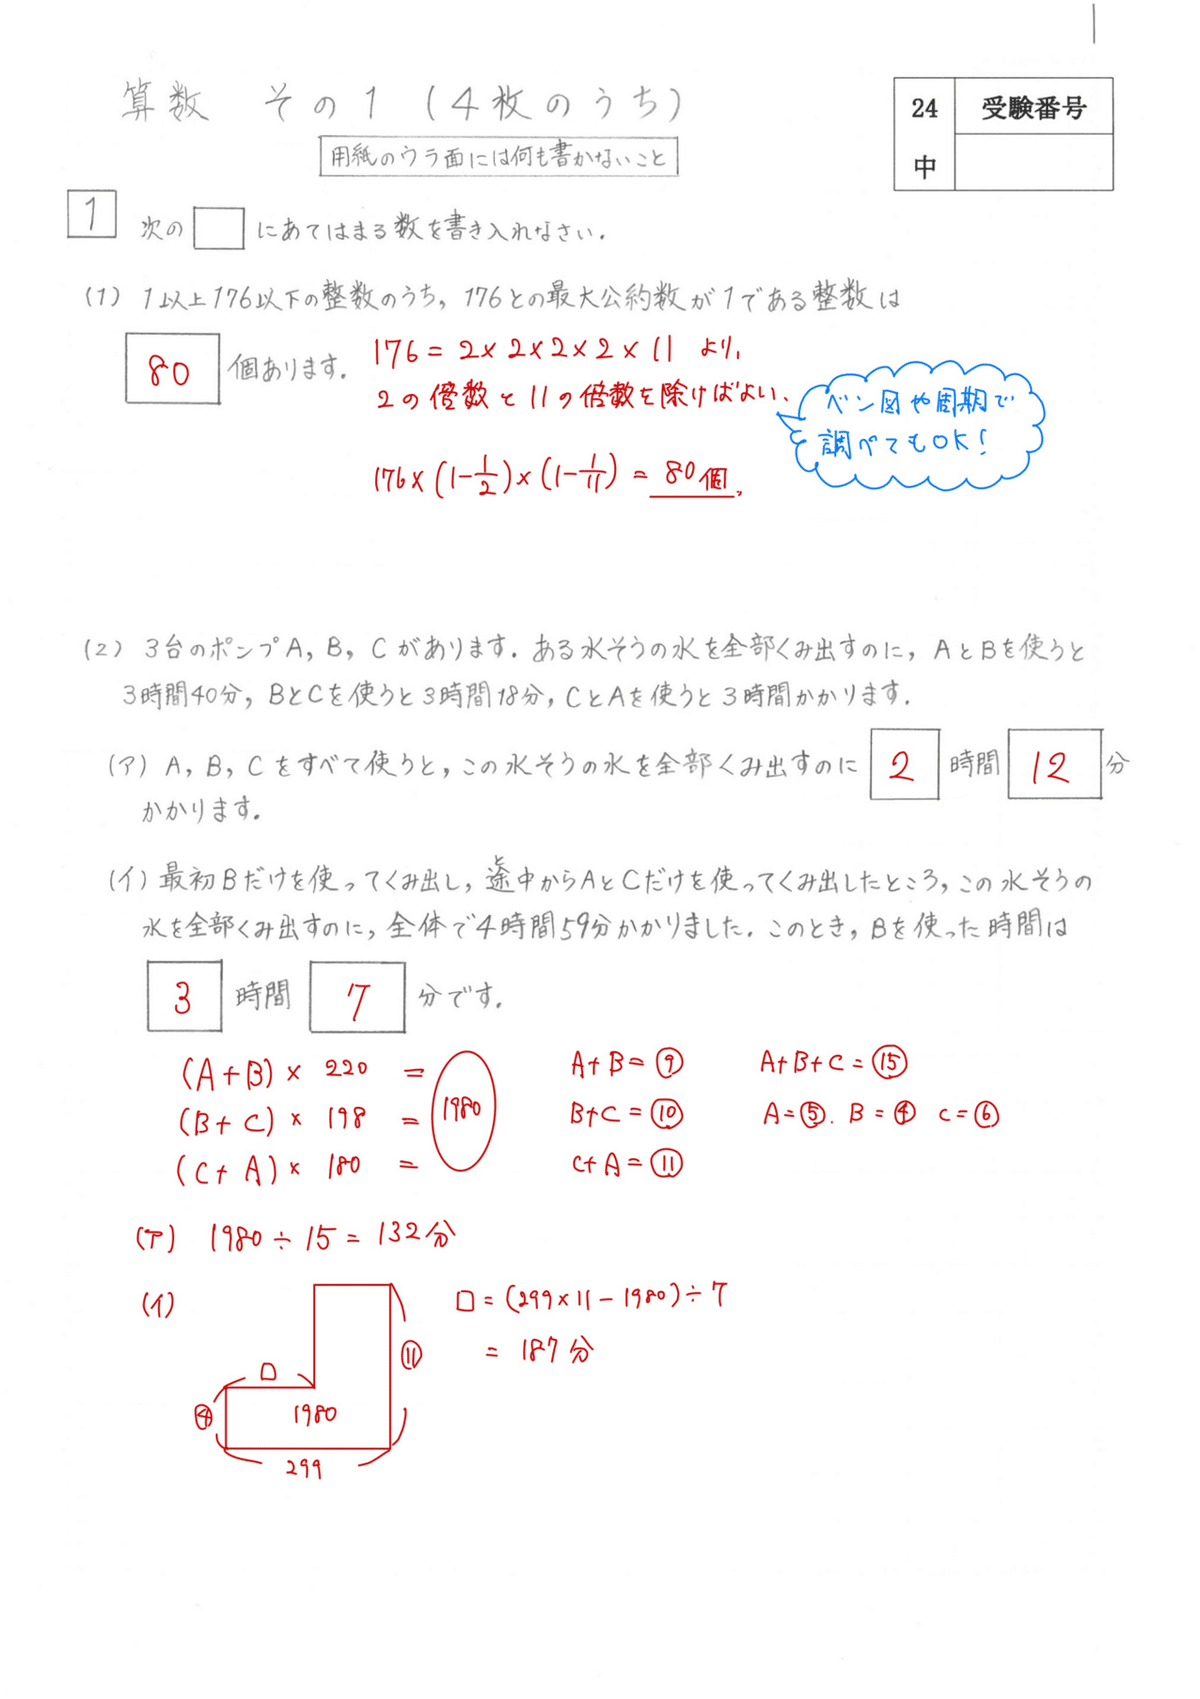 算数　その1　(4枚のうち)
用紙のウラ面には何も書かないこと
24
中
受験番号
1 次の□にあてはまる数を書き入れなさい.
(1) 1以上176以下の整数のうち, 176との最大公約数が1である整数は
80 個あります.
176 = 2×2×2×2×11 より,
2の倍数と11の倍数を除けばよい.
ベン図や周期で
調べてもOK!
176×(1-1/2)×(1-1/11) = 80個.
(2) 3台のポンプA, B, Cがあります. ある水そうの水を全部くみ出すのに, AとBを使うと
3時間40分, BとCを使うと3時間18分, CとAを使うと3時間かかります.
(ア) A, B, Cをすべて使うと, この水そうの水を全部くみ出すのに 2 時間 12 分
かかります.
と
(イ) 最初Bだけを使ってくみ出し, 途中からAとCだけを使ってくみ出したところ, この水そうの
水を全部くみ出すのに, 全体で4時間59分かかりました. このとき, Bを使った時間は
3 時間 7 分です.
(A+B)× 220 =
(B+C)× 198 = 1980
(C+A)× 180 =
A+B=⑨
B+C=⑩
C+A=⑪
A+B+C=⑮
A=⑤. B=④ C=⑥
(ア) 1980÷15=132分
(イ)
□=(299×11-1980)÷7
= 187分
□
⑪
④
1980
299